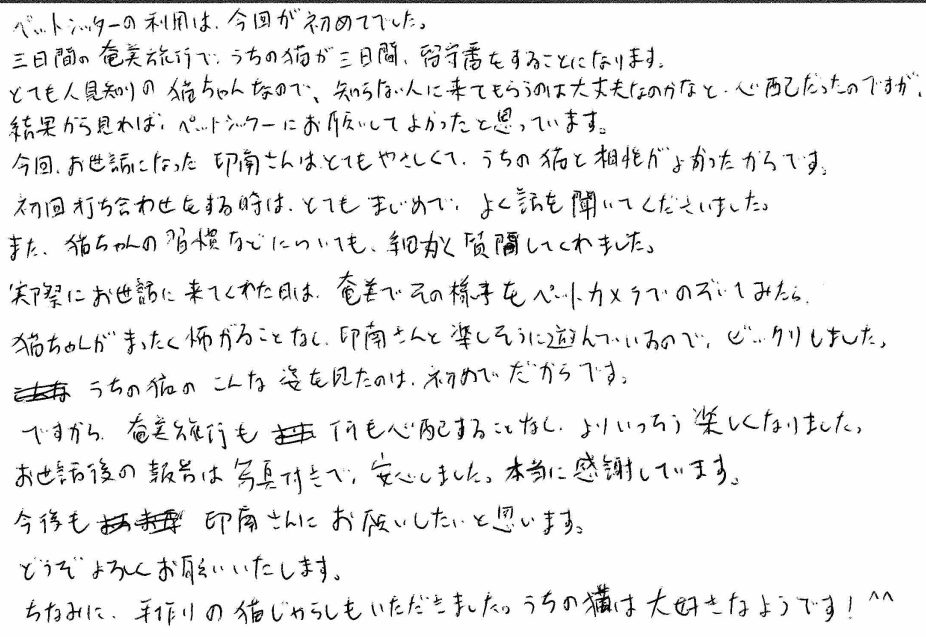 ペットシッターの利用は、今回が初めてでした。
三日間の奄美旅行で、うちの猫が三日間、留守番をすることになります。
とても人見知りの猫ちゃんなので、知らない人に来てもらうのは大丈夫なのかなと、心配だったのですが、
結果から見れば、ペットシッターにお願いしてよかったと思っています。
今回、お世話になった印南さんはとてもやさしくて、うちの猫と相性がよかったからです。
初回打ち合わせをする時は、とてもまじめで、よく話を聞いてくださいました。
また、猫ちゃんの習慣などについても、細かく質問してくれました。
実際にお世話に来てくれた日は、奄美でその様子をペットカメラでのぞいてみたら、
猫ちゃんがまったく怖がることなく、印南さんと楽しそうに遊んでいるので、ビックリしました。
うちの猫のこんな姿を見たのは、初めてだからです。
ですから、奄美旅行も何も心配することなく、よりいっそう楽しくなりました。
お世話後の報告は写真付きで、安心しました。本当に感謝しています。
今後も印南さんにお願いしたいと思います。
どうぞよろしくお願いいたします。
ちなみに、手作りの猫じゃらしもいただきました。うちの猫は大好きなようです！^^